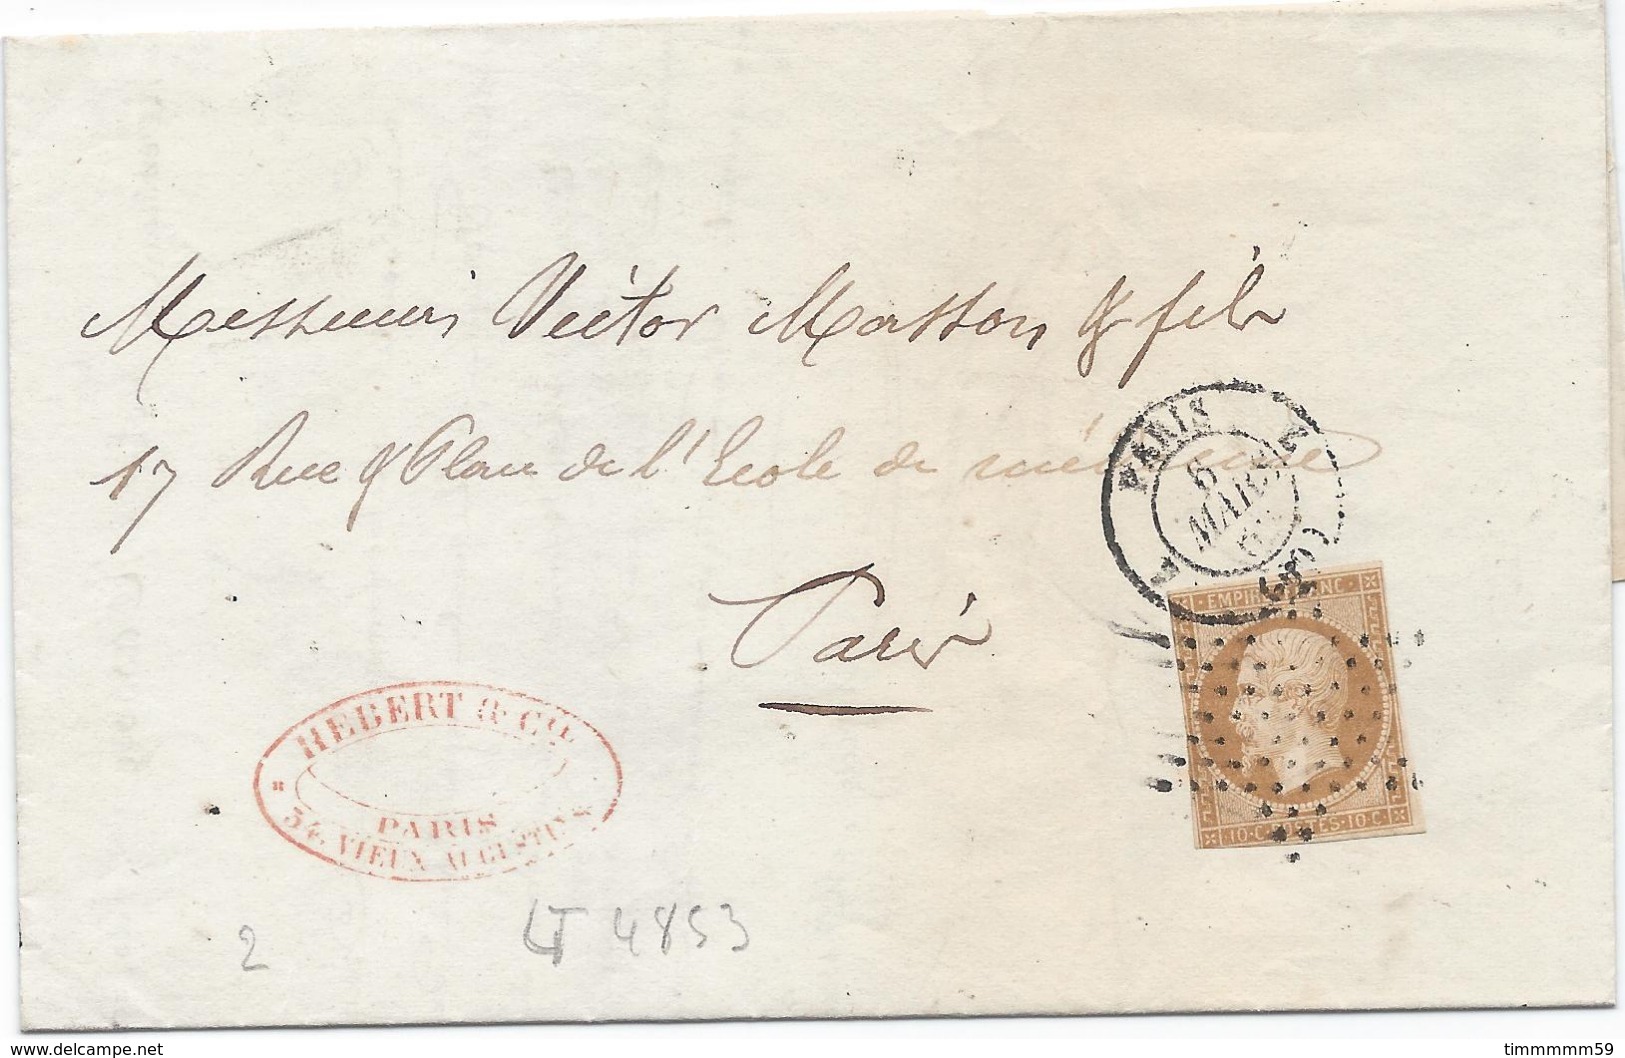 Messieurs Victor Masson & fils
17 Rue & Place de l'Ecole de médecine
Paris
PARIS
6
MARS
(60)
EMPIRE FRANC
10·C·POSTES·10·C·
HEBERT & CIE
PARIS
34, VIEUX AUGUSTINS
2
LT 4853
www.delcampe.net
timmmmmm59